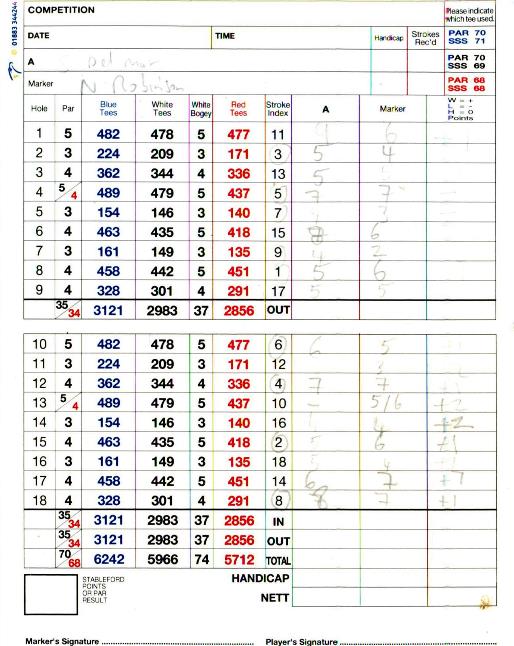 01883 344244
COMPETITION Please indicate which tee used.
DATE TIME Handicap Strokes Rec'd PAR 70 SSS 71
A Del mar PAR 70 SSS 69
Marker N Robinson PAR 68 SSS 68
Hole Par Blue Tees White Tees White Bogey Red Tees Stroke Index A Marker W = + L = - H = 0 Points
1 5 482 478 5 477 11 6
2 3 224 209 3 171 3 5 4
3 4 362 344 4 336 13 5
4 5/4 489 479 5 437 5 7 7
5 3 154 146 3 140 7 3
6 4 463 435 5 418 15 6
7 3 161 149 3 135 9 4 2
8 4 458 442 5 451 1 5 6
9 4 328 301 4 291 17 5 5
35/34 3121 2983 37 2856 OUT
10 5 482 478 5 477 6 6 5
11 3 224 209 3 171 12
12 4 362 344 4 336 4 7 7
13 5/4 489 479 5 437 10 5/6 +2
14 3 154 146 3 140 16 4 +2
15 4 463 435 5 418 2 5 6 +1
16 3 161 149 3 135 18
17 4 458 442 5 451 14 6 7
18 4 328 301 4 291 8 8 7 +1
35/34 3121 2983 37 2856 IN
35/34 3121 2983 37 2856 OUT
70/68 6242 5966 74 5712 TOTAL
STABLEFORD POINTS OR PAR RESULT HANDICAP
NETT
Marker's Signature Player's Signature